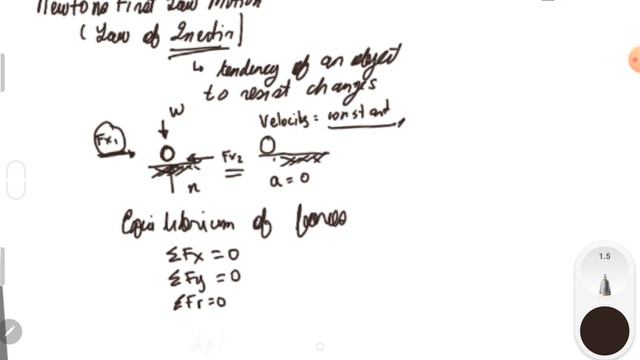 Newtons First Law Motion
(Law of Inertia)
↳ tendency of an object
to resist changes
W
Velocity = constant,
Fx1
Fx2
n
a = 0
Equilibrium of forces
ΣFx = 0
ΣFy = 0
ΣFr = 0
1.5